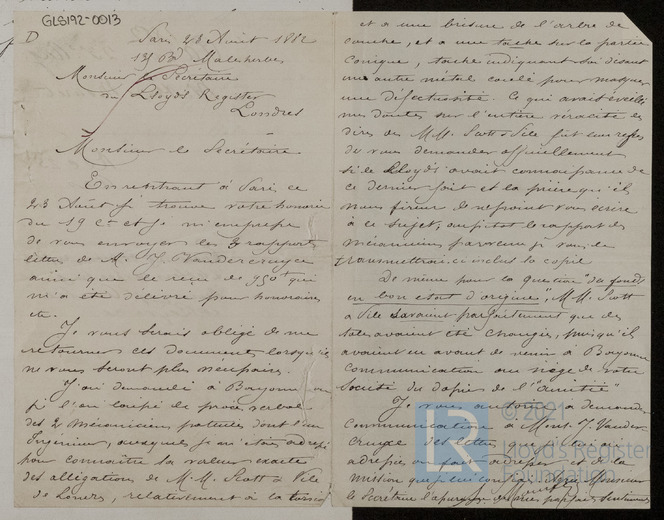 GLS192-0013
D
Paris 28 Août 1882
131 Bd Malesherbes
Monsieur le Secrétaire
du Lloyd's Register
Londres
Monsieur le Secrétaire
En rentrant à Paris, ce
28 Août je trouve votre honorée
du 19 Ct et je m'empresse
de vous envoyer les rapports
lettres de M. J. Vandercruyce
ainsi que le reçu de 950f qui
m'a été délivré pour honoraires
etc.
Je vous serais obligé de me
retourner ces documents lorsqu'ils
ne vous seront plus nécessaires.
J'ai demandé à Bayonne
je l'ai
des 2 mécaniciens patentés dont l'un
Ingénieur, auxquels je m'étais adressé
pour connaître la valeur exacte
des allégations de M.M. Scott & Pile
de Londres, relativement à la
et a une brisure de l'arbre de
couche, et a une tache sur la partie
Conique, tache indiquant soi disant
une autre métal coulé pour masquer
une défectuosité. Ce qui avait éveillé
mes doutes sur l'entière véracité des
dires de M.M. Scott & Pile fut leur refus
de vous demander officiellement
si le Lloyds avait connaissance de
ce dernier fait et la prière qu'ils
nous firent de ne point vous écrire
à ce sujet, aussitôt le rapport des
mécaniciens parvenu je vous le
transmettrai, ci inclus la copie
De même pour la question "des fonds
en bon état d'origine", M.M. Scott
& Pile savaient parfaitement que des
toles avaient été changées, puisqu'ils
avaient eu avant de venir à Bayonne
communication au siège de votre
Société du dossier de l'"Amitié"
Je vous autorise à demander
communication à Monsr J. Vander-
cruyce des lettres que je lui ai
adressées ou fait adresser, de la
mission que je lui
le Secrétaire l'
© 2021
LR
Lloyd's Register
Foundation